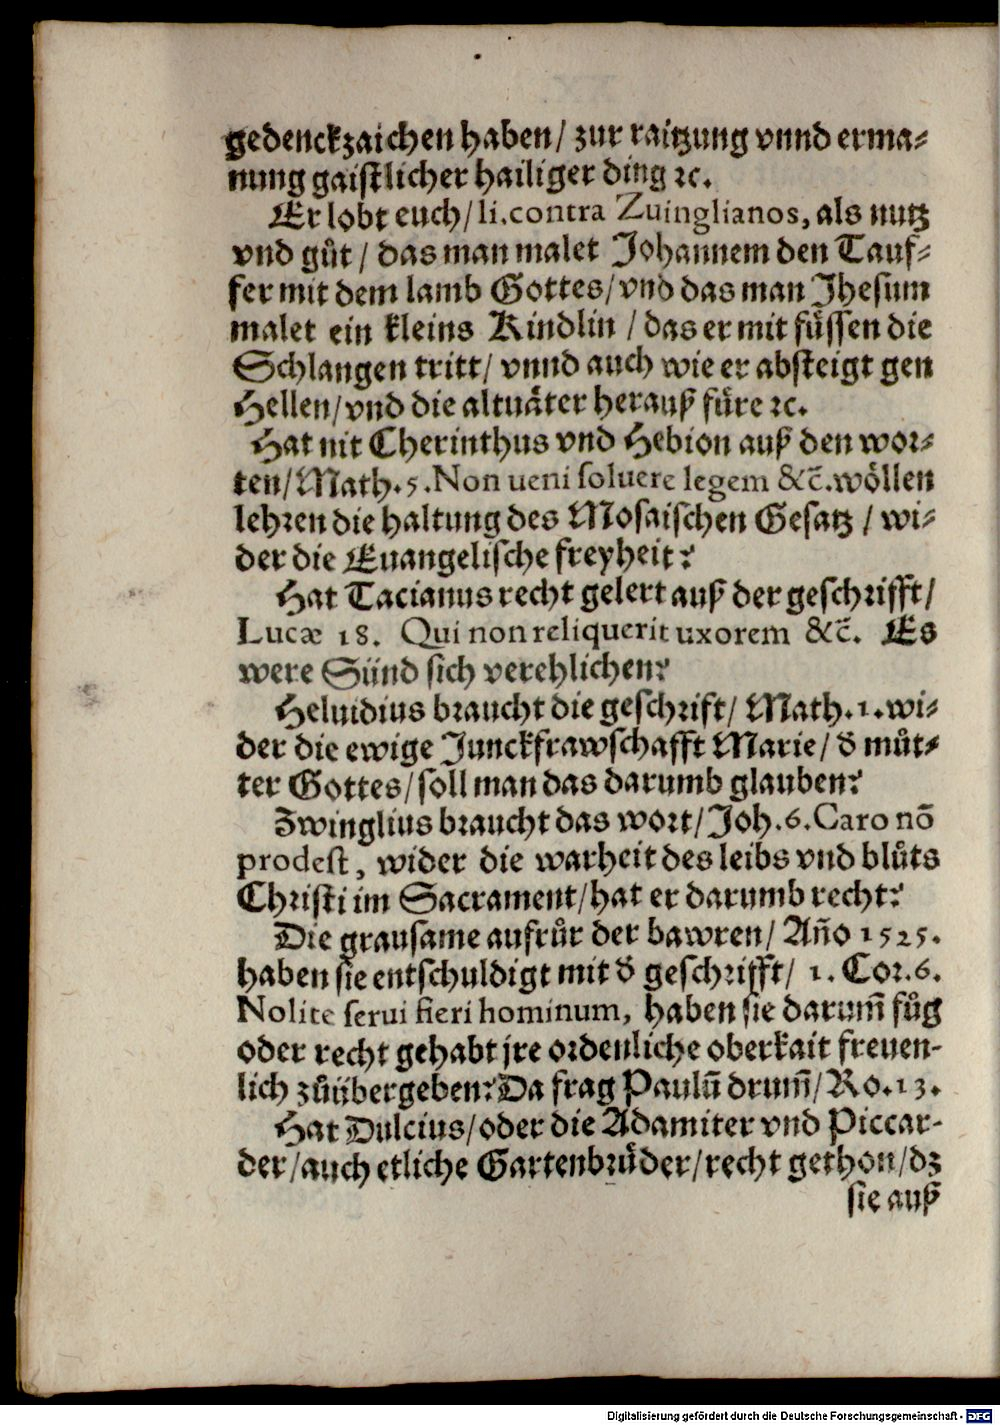 gedenckzaichen haben/ zur raitzung vnnd erma⸗
nung gaistlicher hailiger ding ꝛc.
Er lobt euch/ li. contra Zuinglianos, als nutz
vnd gůt / das man malet Johannem den Tauf⸗
fer mit dem lamb Gottes/ vnd das man Jhesum
malet ein kleins Kindlin / das er mit füssen die
Schlangen tritt/ vnnd auch wie er absteigt gen
Hellen/ vnd die altuäter herauß füre ꝛc.
Hat nit Cherinthus vnd Hebion auß den wor⸗
ten/ Math. 5. Non ueni soluere legem &c̃. wöllen
lehren die haltung des Mosaischen Gesatz / wi⸗
der die Euangelische freyheit?
Hat Tacianus recht gelert auß der geschrifft/
Lucæ 18. Qui non reliquerit uxorem &c̃. Es
were Sünd sich verehlichen?
Heluidius braucht die geschrift/ Math. 1. wi⸗
der die ewige Junckfrawschafft Marie/ ď můt⸗
ter Gottes/ soll man das darumb glauben?
Zwinglius braucht das wort/ Joh. 6. Caro nõ
prodest, wider die warheit des leibs vnd blůts
Christi im Sacrament/ hat er darumb recht?
Die grausame aufrůr der bawren/ Añо 1525.
haben sie entschuldigt mit ď geschrifft/ 1. Cor. 6.
Nolite serui fieri hominum, haben sie darum̃ fůg
oder recht gehabt jre ordenliche oberkait freuen-
lich zůübergeben? Da frag Paulũ drum̃/ Ro. 13.
Hat Dulcius/ oder die Adamiter vnd Piccar-
der/ auch etliche Gartenbrüder/ recht gethon/ dz
sie auß
Digitalisierung gefördert durch die Deutsche Forschungsgemeinschaft - DFG